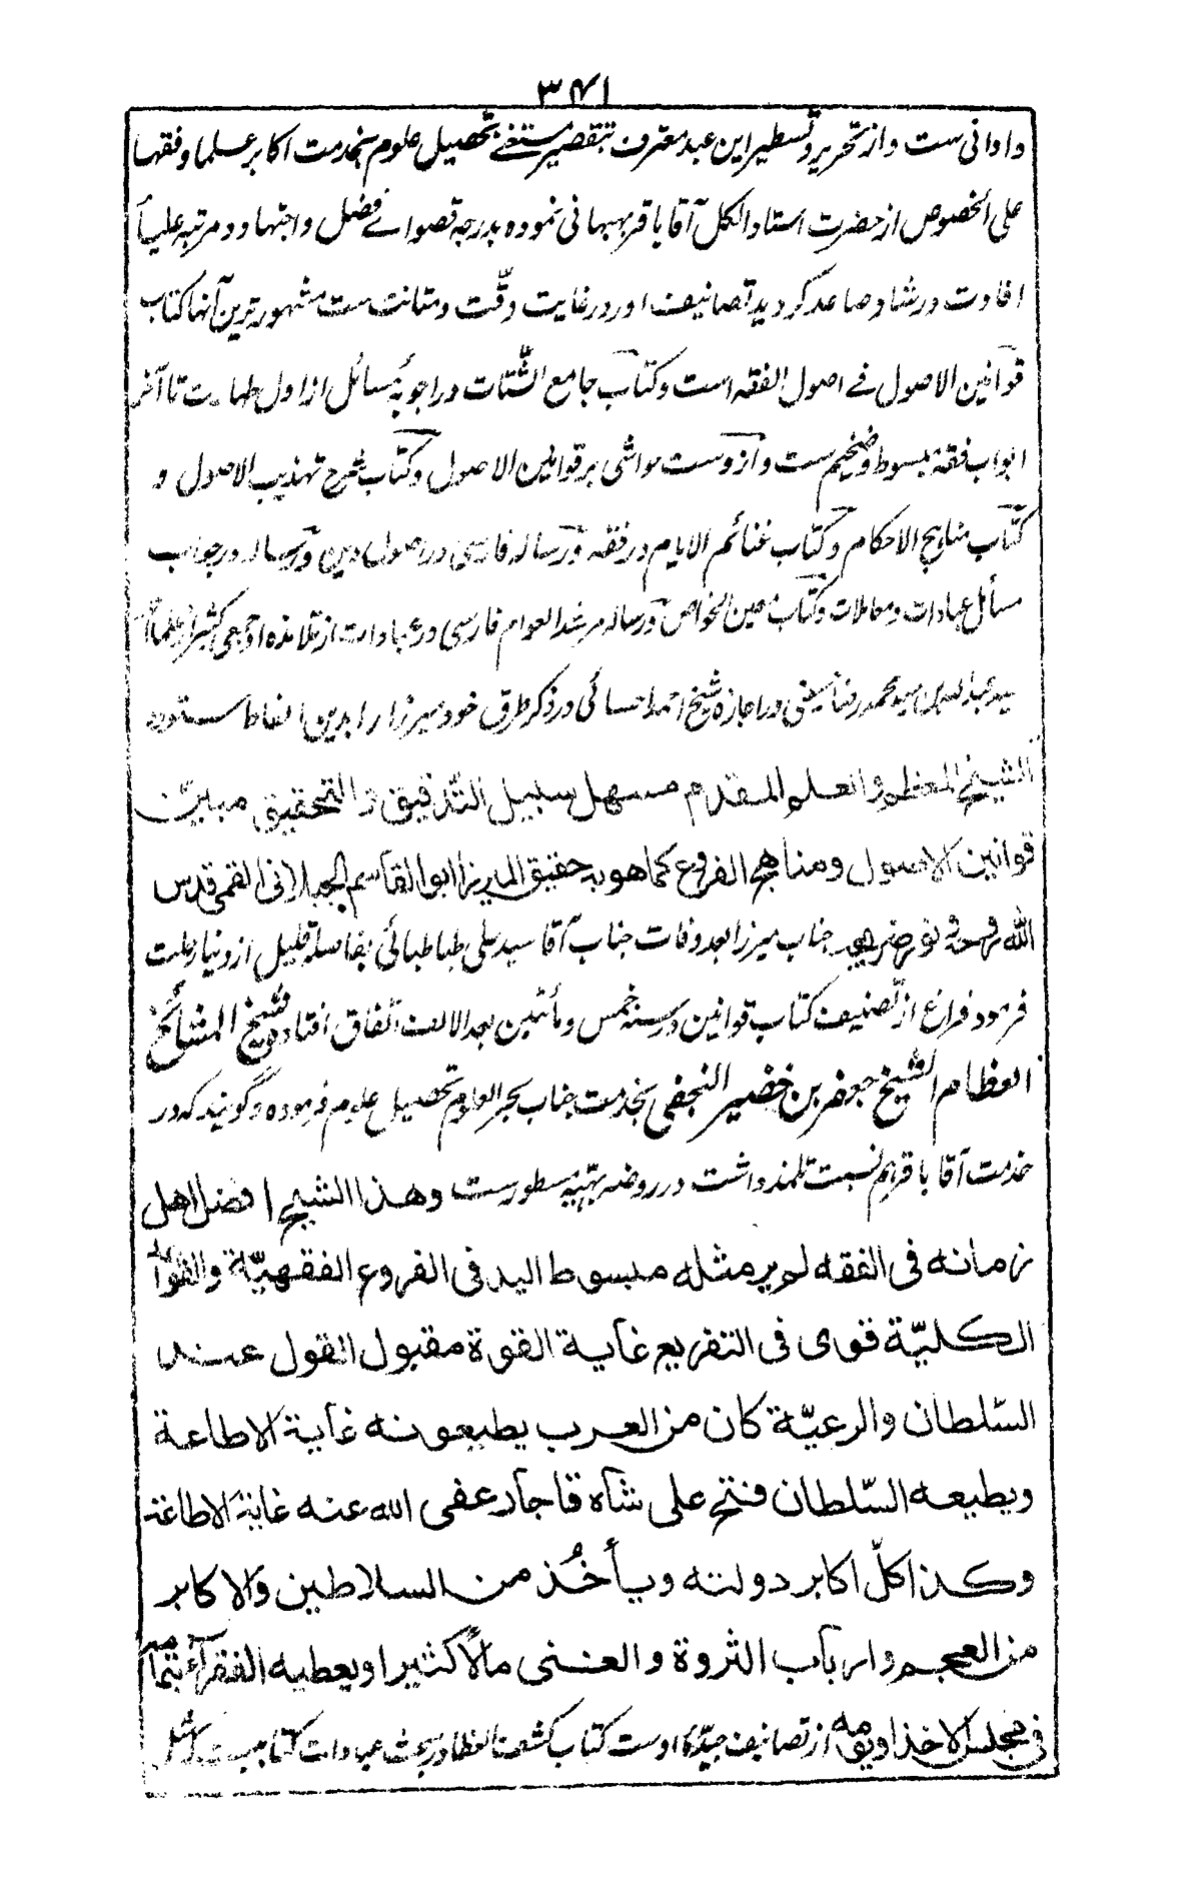 ۳۴۱
و ادانی ست و از تحریر و تسطیر این عبد معترف بتقصیر مستغنی تحصیل علوم بخدمت اکابر علما و فقها
علی الخصوص از حضرت استاد الکل آقا باقر بهبهانی نموده بدرجه قصوای فضل و اجتهاد و مرتبه علیاء
افادت و رشاد صاعد گردید تصانیف او در غایت دقّت و متانت ست مشهورترین آنها کتاب
قوانین الاصول فی اصول الفقه است و کتاب جامع الشّتات در اجوبهٔ مسائل از اول طهارت تا آخر
ابواب فقه مبسوط و ضخیم ست و از وست حواشی بر قوانین الاصول و کتاب شرح تهذیب الاصول و
کتاب مناهج الاحکام و کتاب غنائم الایام در فقه و رساله فارسی در اصول دین و رساله در جواب
مسائل عبادات و معاملات و کتاب معین الخواص و رساله مرشد العوام فارسی در عبادات از تلامذه او جمعی کثیر از علما
سید عبدالله بن سید محمد رضا حسینی در اجازه شیخ احمد احسائی در ذکر طرق خود میرزا را بدین الفاظ ستوده
الشیخ المعظم والعلم المقدم مسهل سبیل التّدقیق والتحقیق مبیّن
قوانین الاصول ومناهج الفروع کما هو به حقیق المیرزا ابوالقاسم الجیلانی القمی قدس
الله روحه و نور ضریحه جناب میرزا بعد وفات جناب آقا سید علی طباطبائی بفاصله قلیل از دنیا رحلت
فرمود فراغ از تصنیف کتاب قوانین در سنه خمس و مأتین بعد الالف اتفاق افتاد و شیخ المشائخ
العظام الشیخ جعفر بن خضیر النجفی بخدمت جناب بحر العلوم تحصیل علوم فرموده و گویند که در
خدمت آقا باقر هم نسبت تلمذ داشت در روضه بهیّه مسطور ست وهذا الشیخ افضل اهل
زمانه فی الفقه لم یر مثله مبسوط الید فی الفروع الفقهیّة والقواعد
الکلیّة قوی فی التفریع غایة القوة مقبول القول عند
السّلطان والرعیّة کان من العرب یطیعونه غایة الاطاعة
ویطیعه السّلطان فتح علی شاه قاجار عفی الله عنه غایة الاطاعة
وکذا کلّ اکابر دولته ویأخُذ من السلاطین والاکابر
من العجم وارباب الثروة والغنی مالاً کثیرا ویعطیه الفقرآء بتمامه
فی مجلس الاخذ او یومه از تصانیف جیّدهٔ اوست کتاب کشف الغطا در بحث عبادات کتابیست که مثل